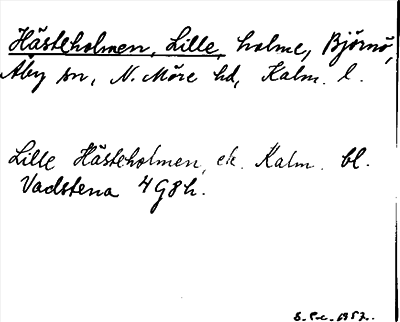 Hästeholmen, Lille, holme, Björnö,
Åby sn, N. Möre hd, Kalm. l.
Lille Hästeholmen, ek. Kalm. bl.
Vadstena 4 G8h.
1952.